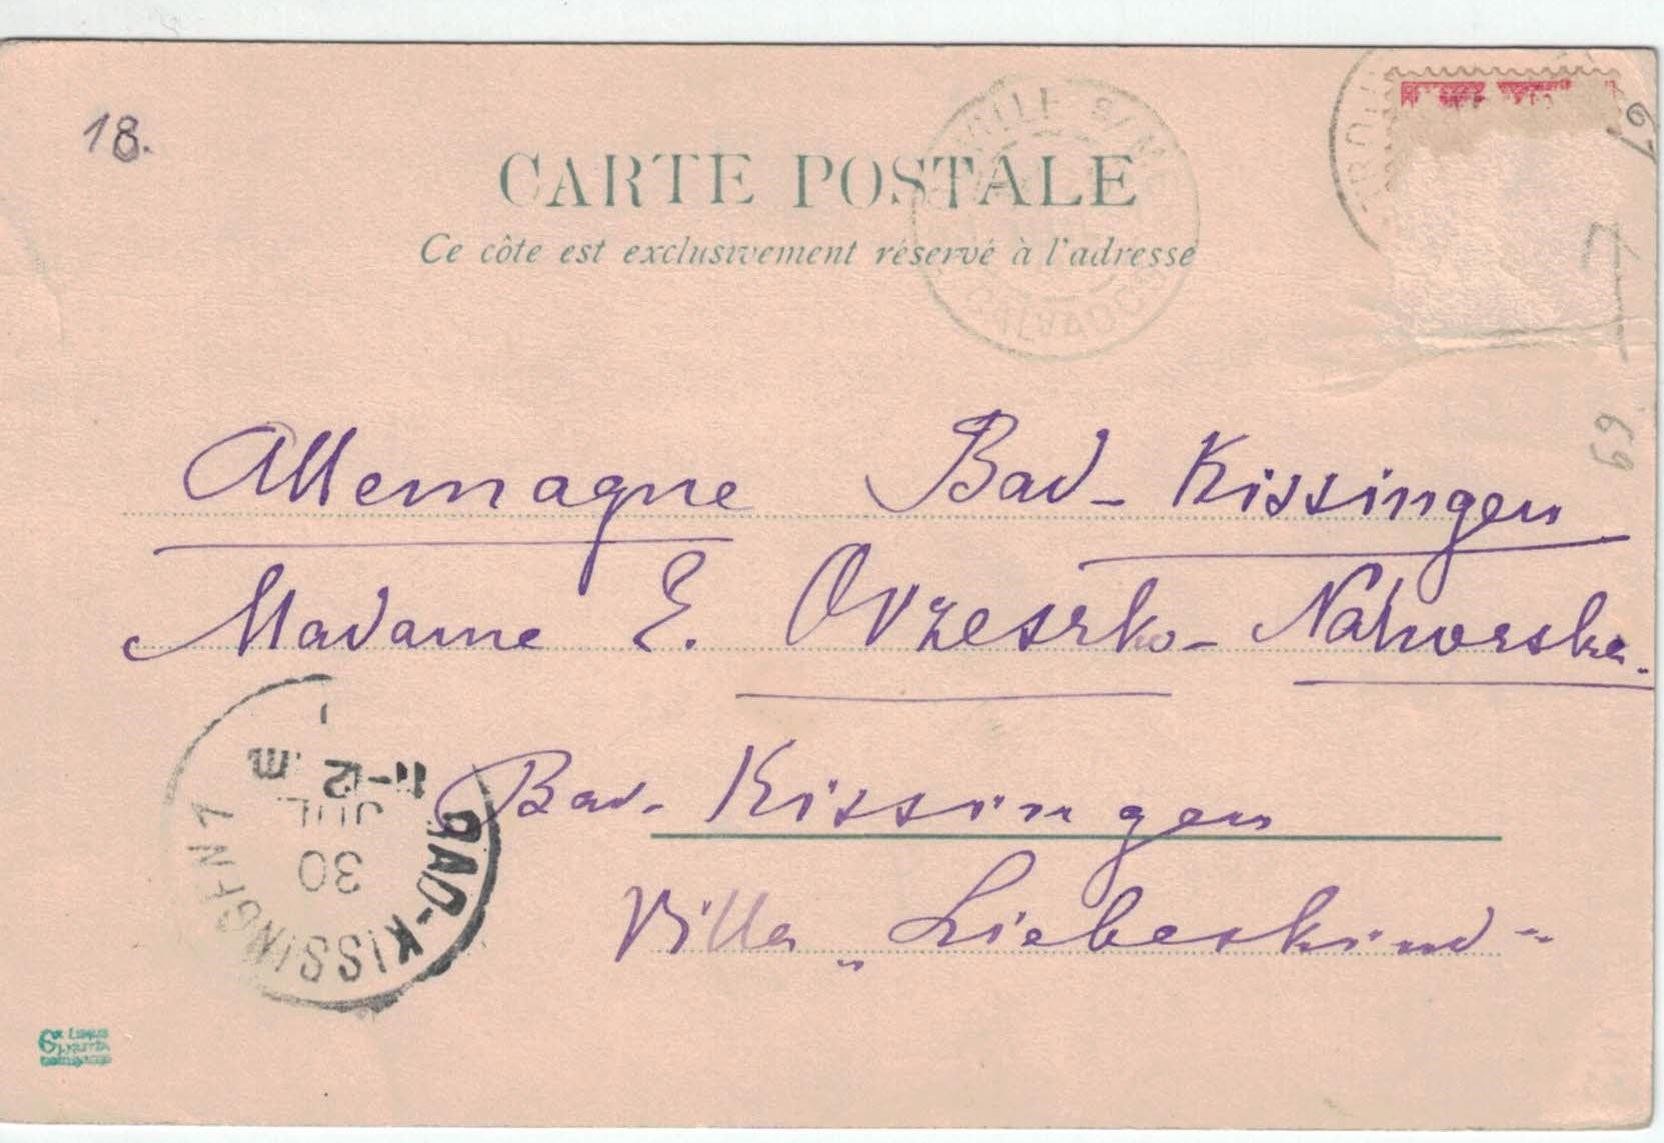 18.
CARTE POSTALE
Ce côte est exclusivement réservé à l'adresse
CALVADOS
TROU
61
69
Allemagne Bad-Kissingen
Madame E. Orzeszko-Nahorska.
Bad-Kissingen
Villa „Liebeskind"
BAD-KISSINGEN 1
30
JUL
11-12 m